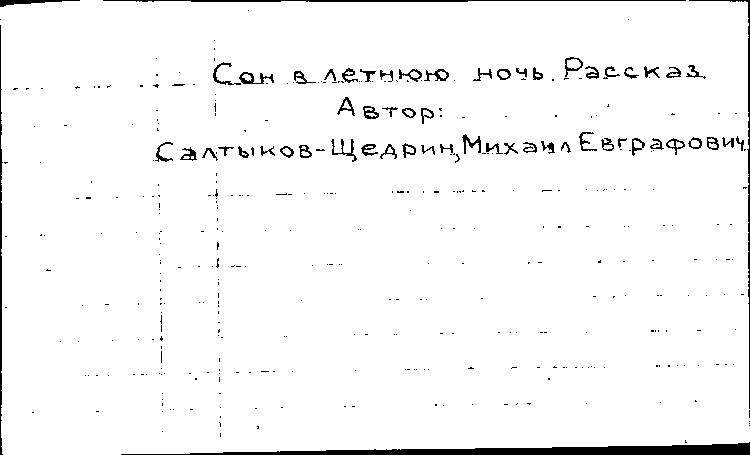 Сон в летнюю ночь. Рассказ
Автор:
Салтыков-Щедрин, Михаил Евграфович